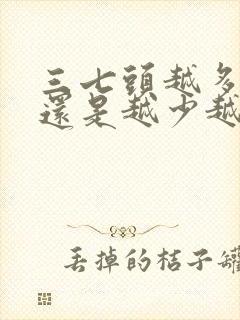 三七頭越多
還是越少越
丢掉的桔子罐